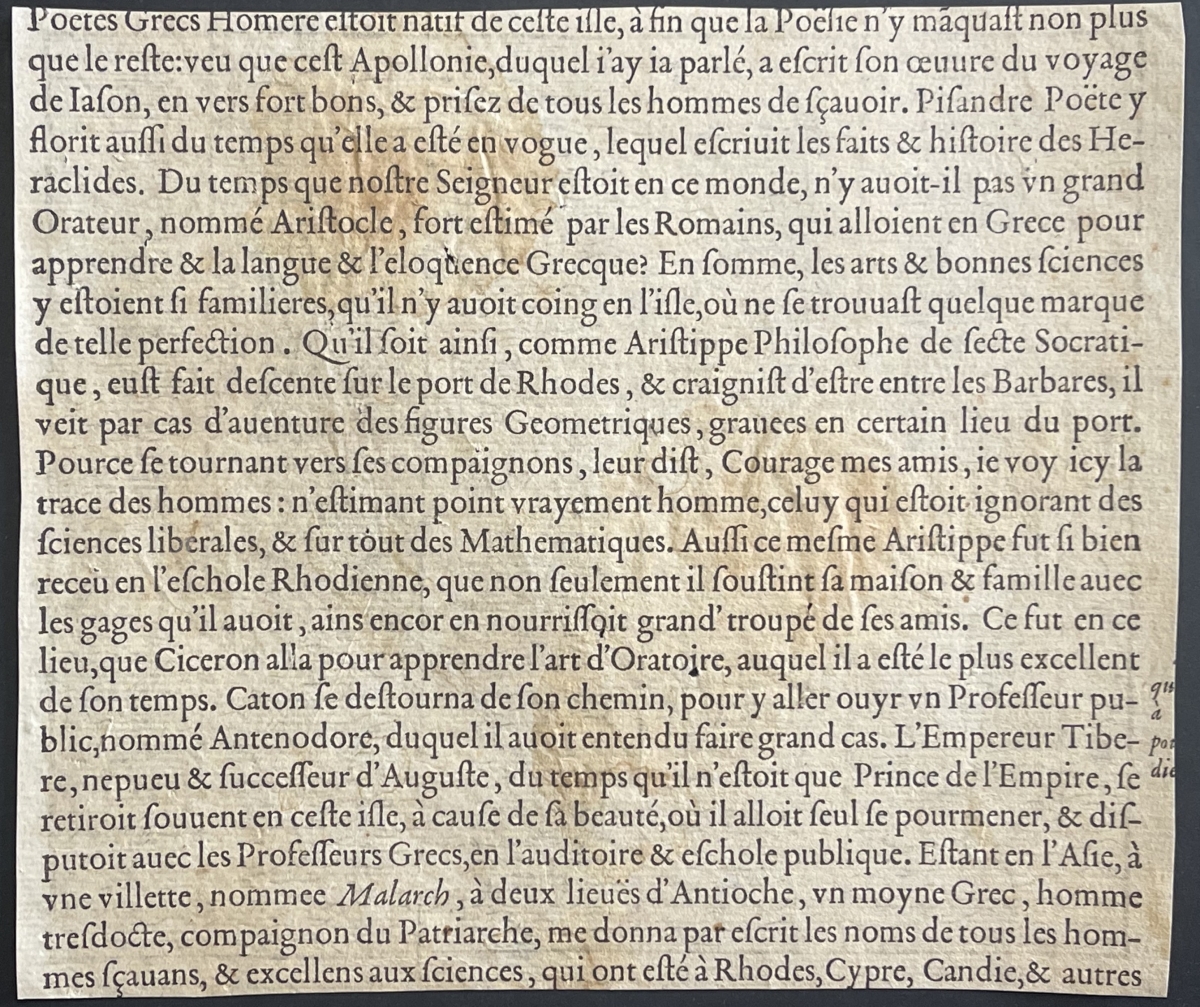 Poetes Grecs Homere eſtoit natif de ceſte iſle, à fin que la Poëſie n'y mãquaſt non plus
que le reſte:veu que ceſt Apollonie,duquel i'ay ia parlé, a eſcrit ſon œuure du voyage
de Iaſon, en vers fort bons, & priſez de tous les hommes de ſçauoir. Piſandre Poëte y
florit auſſi du temps qu'elle a eſté en vogue, lequel eſcriuit les faits & hiſtoire des He-
raclides. Du temps que noſtre Seigneur eſtoit en ce monde, n'y auoit-il pas vn grand
Orateur, nommé Ariſtocle, fort eſtimé par les Romains, qui alloient en Grece pour
apprendre & la langue & l'eloquence Grecque? En ſomme, les arts & bonnes ſciences
y eſtoient ſi familieres,qu'il n'y auoit coing en l'iſle,où ne ſe trouuaſt quelque marque
de telle perfection. Qu'il ſoit ainſi, comme Ariſtippe Philoſophe de ſecte Socrati-
que, euſt fait deſcente ſur le port de Rhodes, & craigniſt d'eſtre entre les Barbares, il
veit par cas d'auenture des figures Geometriques, grauees en certain lieu du port.
Pource ſe tournant vers ſes compaignons, leur diſt, Courage mes amis, ie voy icy la
trace des hommes: n'eſtimant point vrayement homme,celuy qui eſtoit ignorant des
ſciences liberales, & ſur tout des Mathematiques. Auſſi ce meſme Ariſtippe fut ſi bien
receu en l'eſchole Rhodienne, que non ſeulement il ſouſtint ſa maiſon & famille auec
les gages qu'il auoit, ains encor en nourriſſoit grand' troupe de ſes amis. Ce fut en ce
lieu,que Ciceron alla pour apprendre l'art d'Oratoire, auquel il a eſté le plus excellent
de ſon temps. Caton ſe deſtourna de ſon chemin, pour y aller ouyr vn Profeſſeur pu-
blic,nommé Antenodore, duquel il auoit entendu faire grand cas. L'Empereur Tibe-
re, nepueu & ſucceſſeur d'Auguſte, du temps qu'il n'eſtoit que Prince de l'Empire, ſe
retiroit ſouuent en ceſte iſle, à cauſe de ſa beauté,où il alloit ſeul ſe pourmener, & diſ-
putoit auec les Profeſſeurs Grecs,en l'auditoire & eſchole publique. Eſtant en l'Aſie, à
vne villette, nommee Malarch, à deux lieuës d'Antioche, vn moyne Grec, homme
treſdocte, compaignon du Patriarche, me donna par eſcrit les noms de tous les hom-
mes ſçauans, & excellens aux ſciences, qui ont eſté à Rhodes, Cypre, Candie,& autres